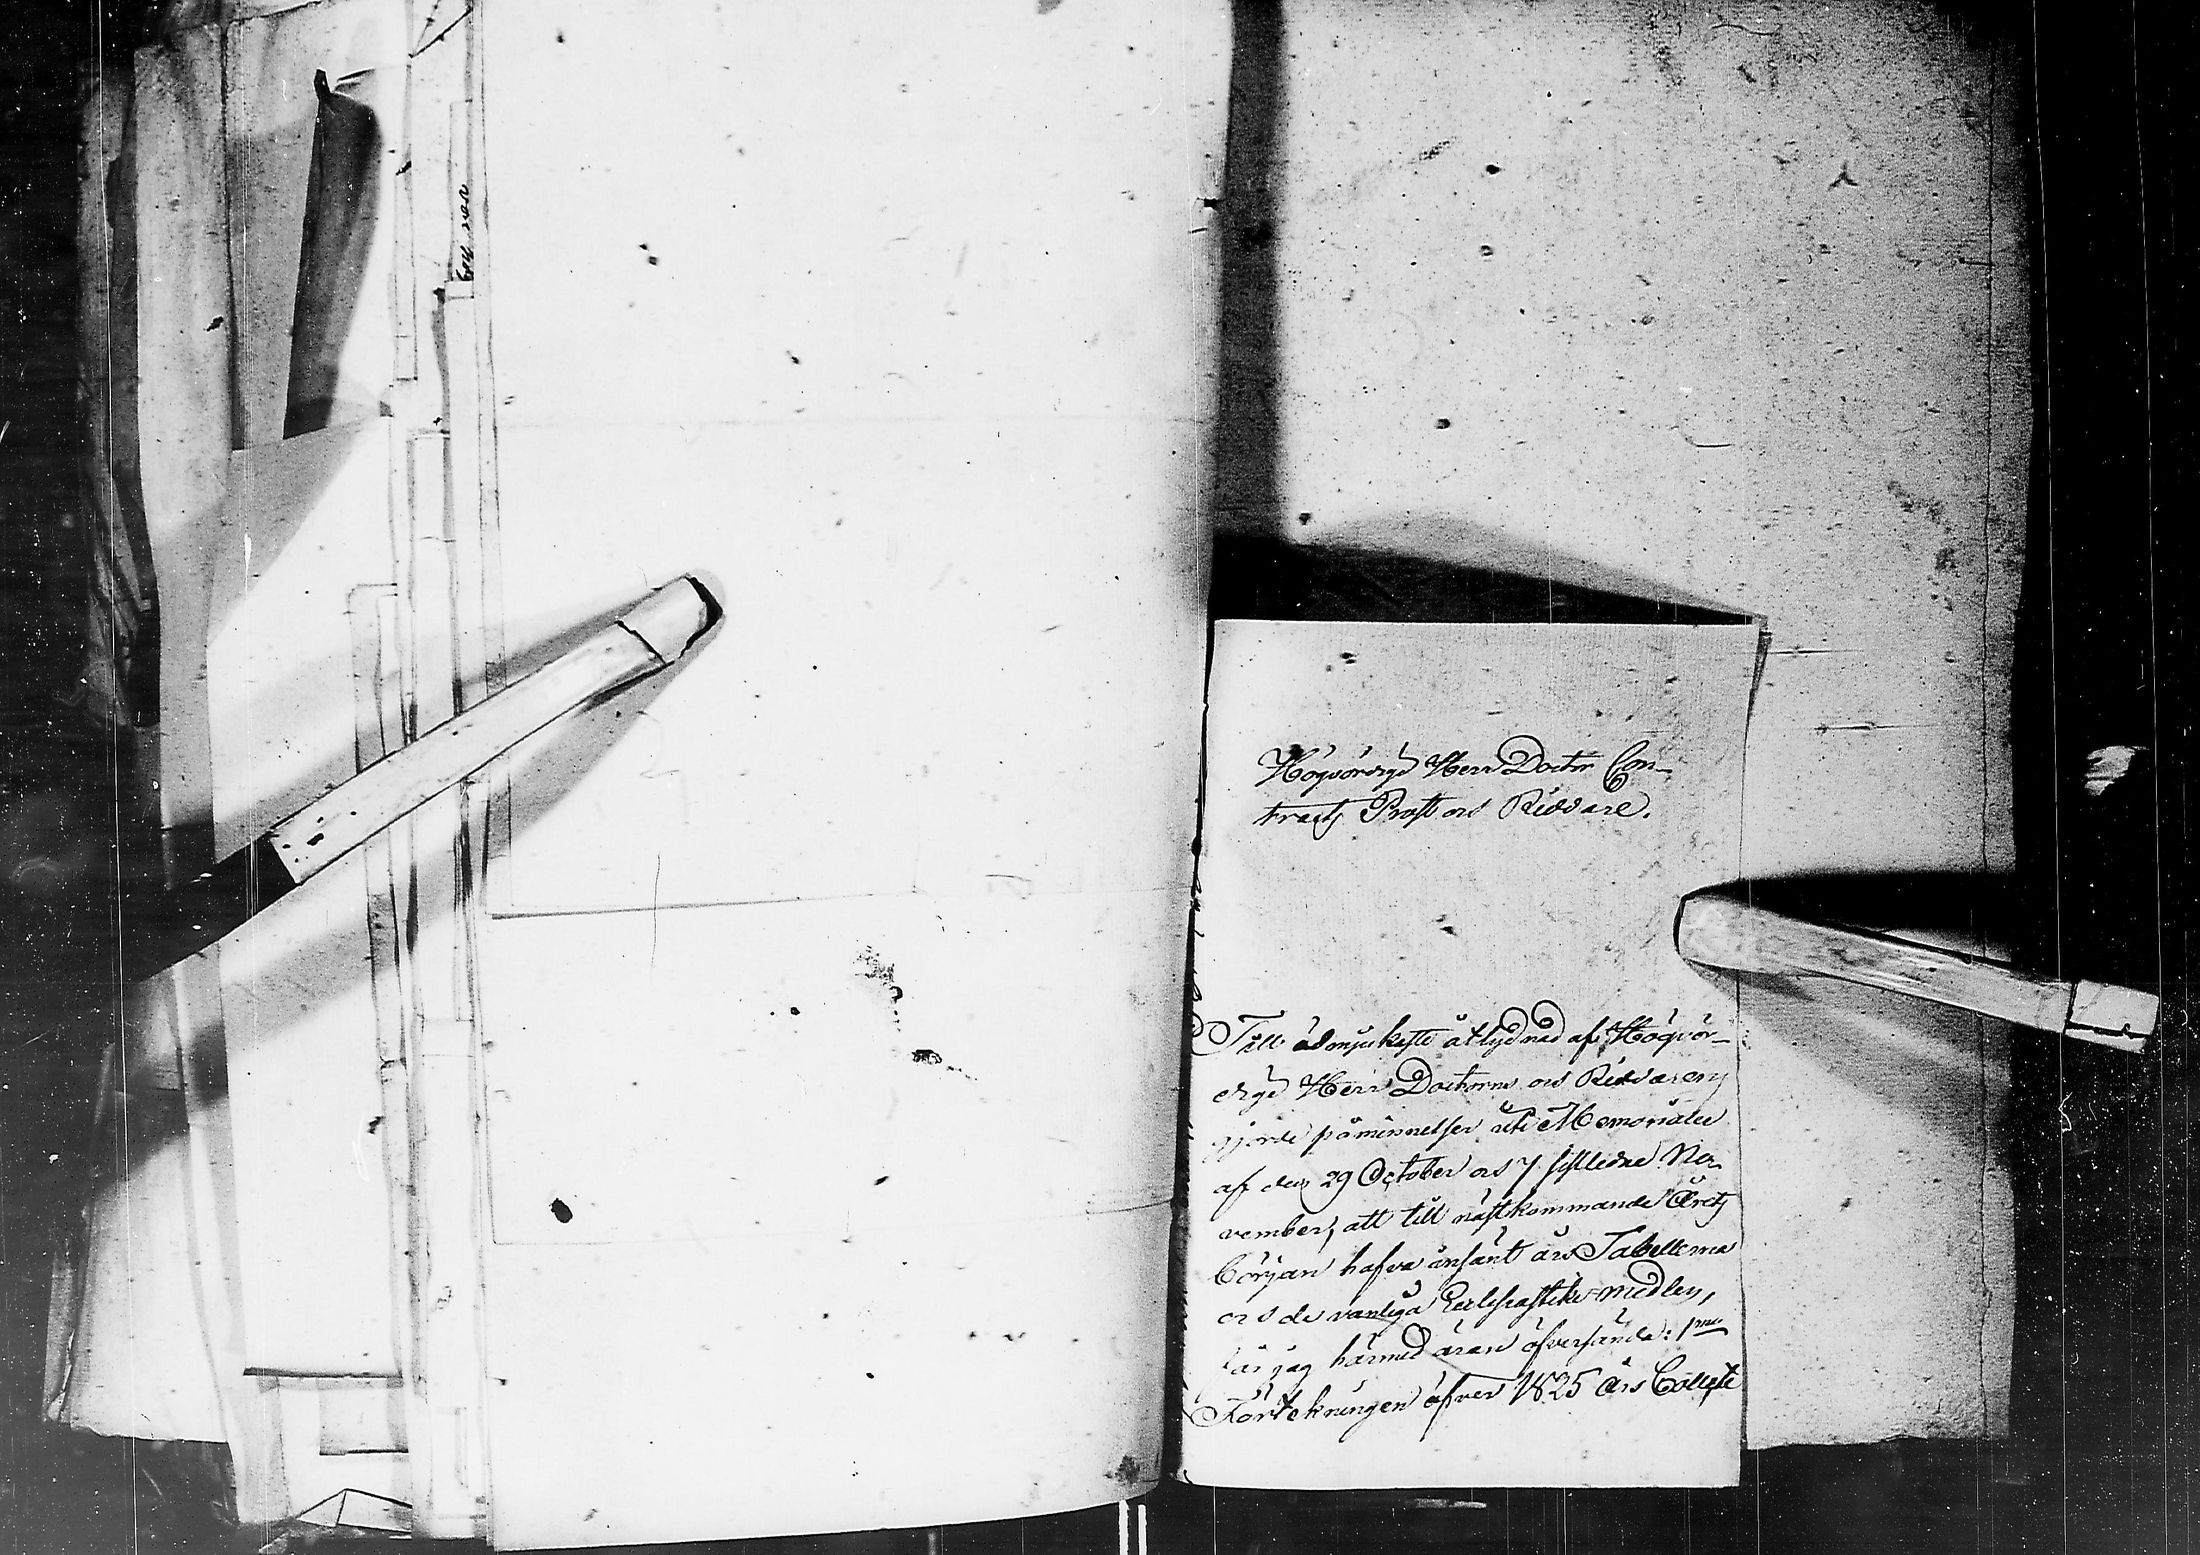 Högvördige Herr Doctor Con-
tracts Prost och Riddare.
Till ödmjukaste åtlydnad af Högvör-
dige Herr Doctorns och Riddarens
gjorde påminnelser uti Memorialer
af den 29 October och 7 sistledne No-
vember, att till nästkommande Årets
början hafva insänt års Tabellerna
och de vanliga Ecclesiastike-medlen,
får jag härmed äran öfversända: 1mo
Förtekningen öfver 1825 års Collect